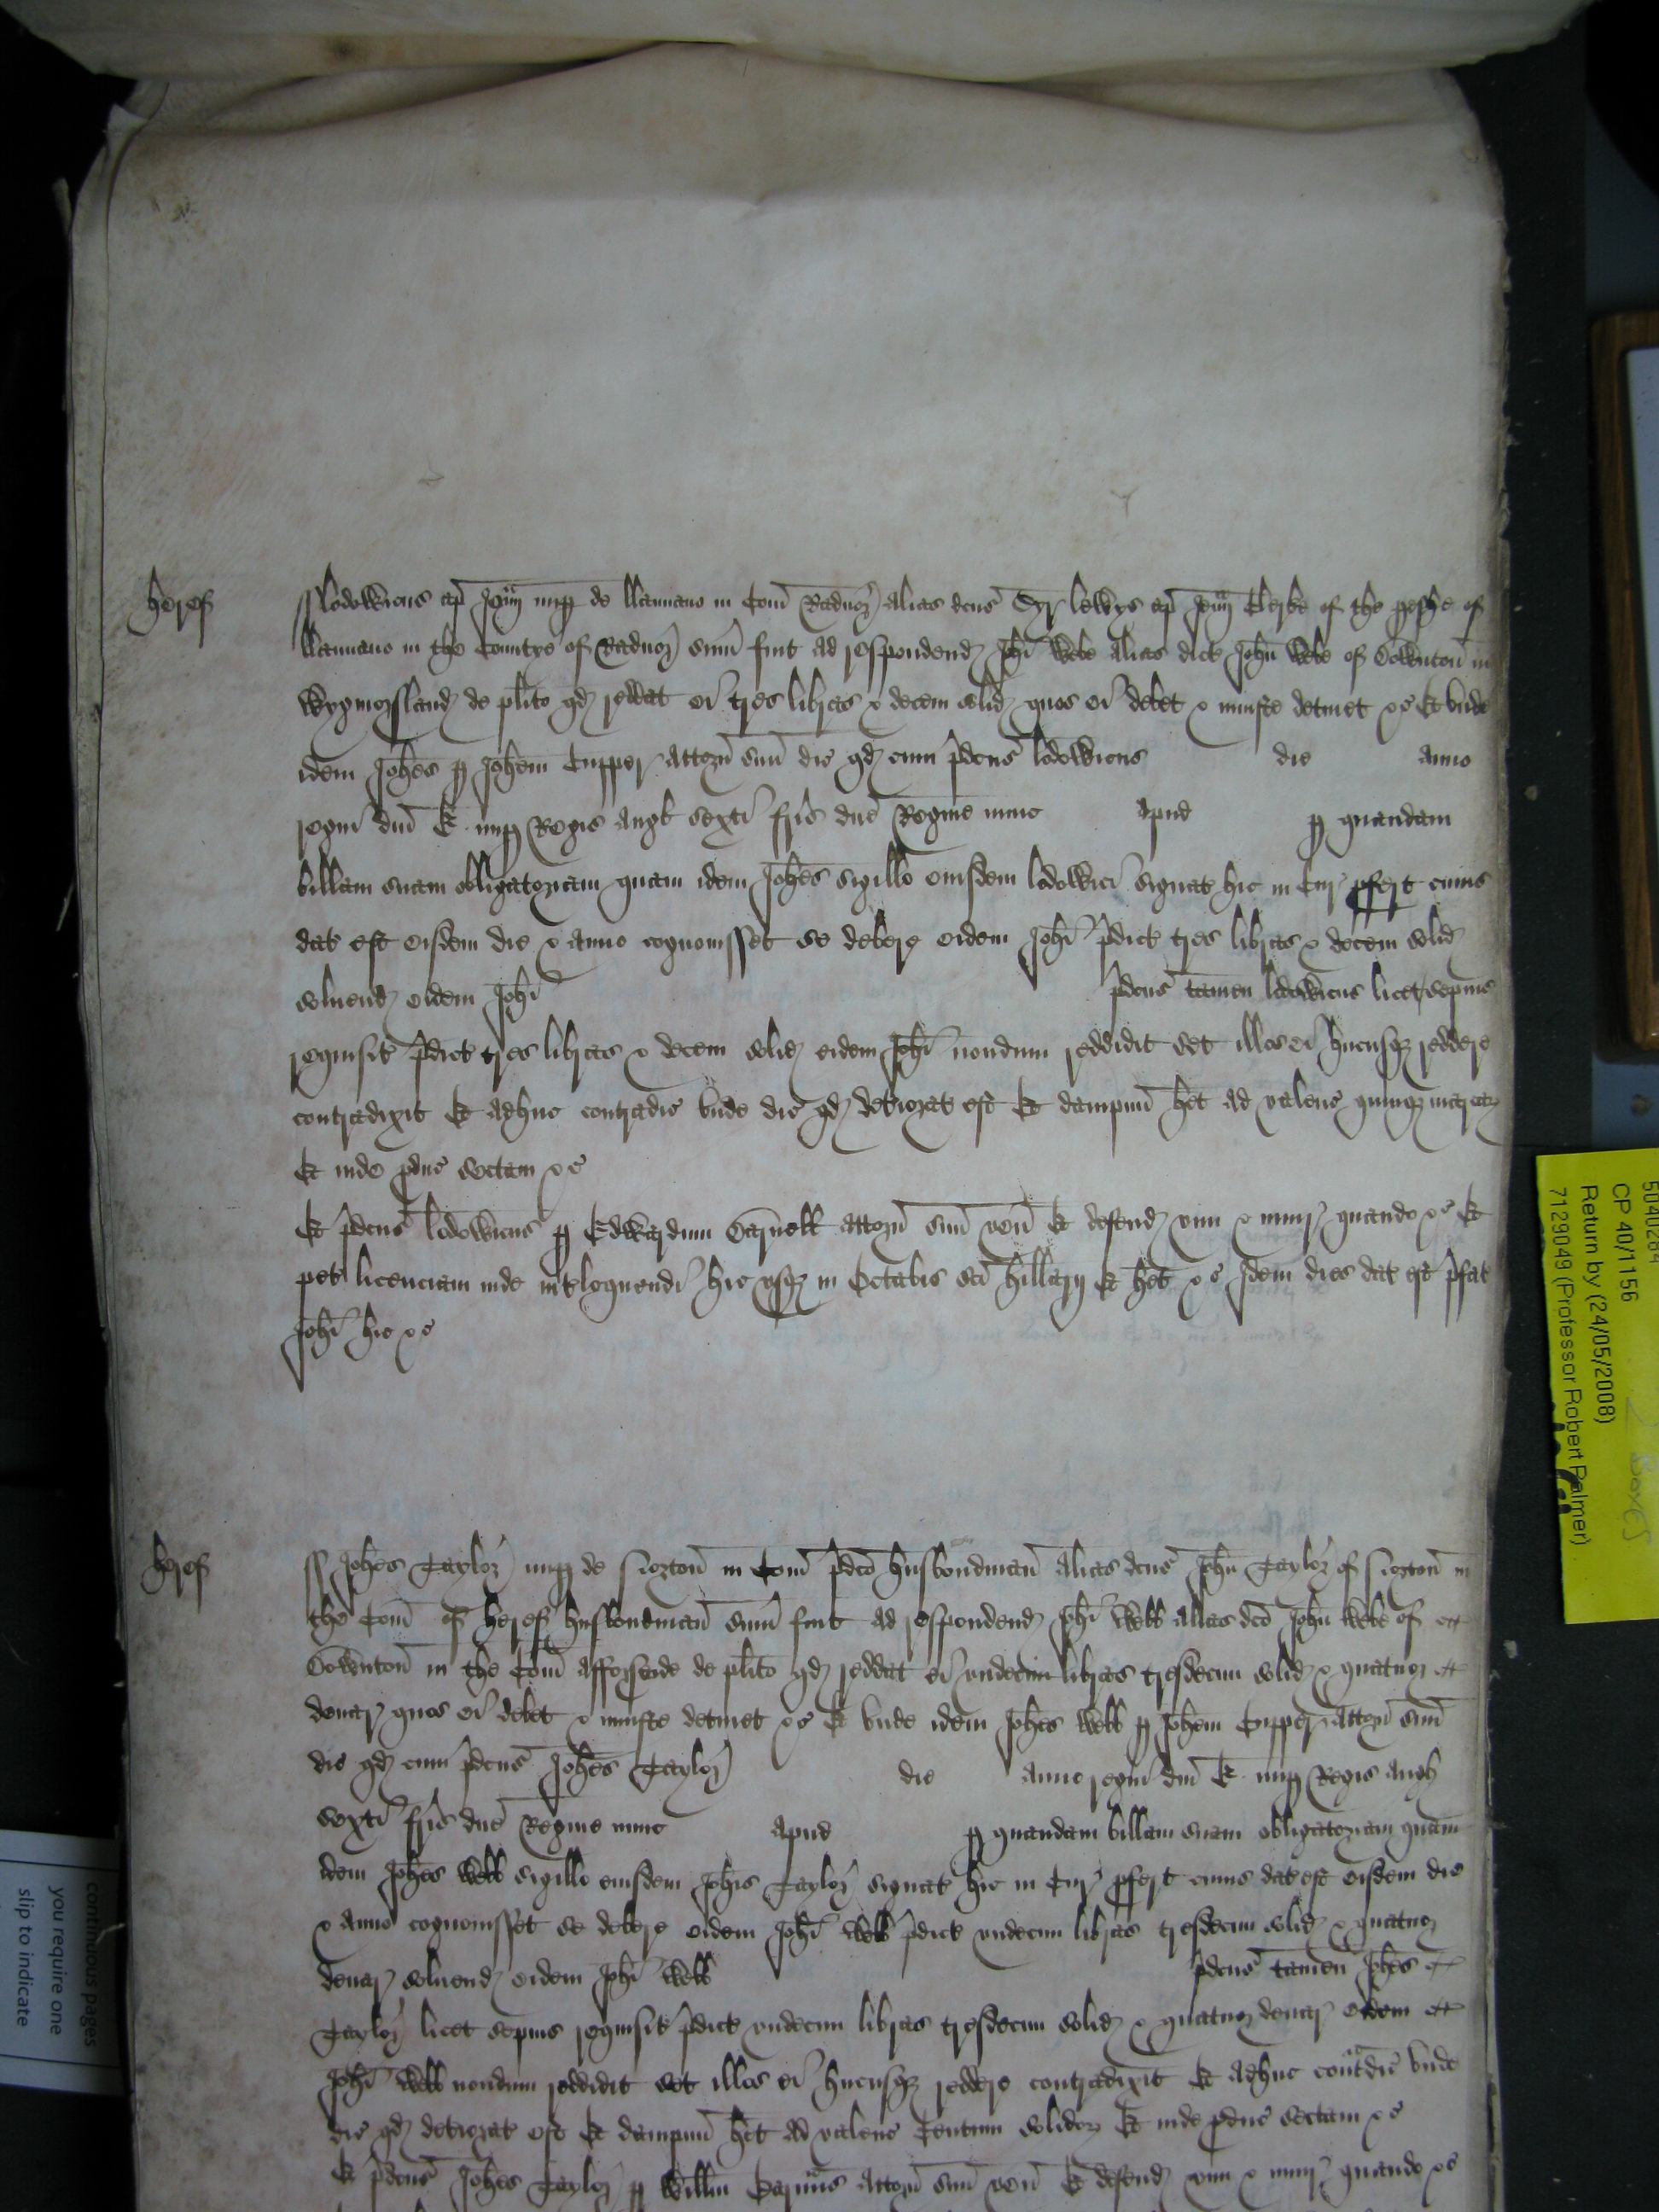 heref
Lodowicus ap Jeu͠n nup de llannano in Com̄ Radnor alias dcus Syr lewys ap Jeu͠n Clerke of the pyshe of
llannano in the Countye of Radnor sum̄ fuit ad respondend Joh̄i Webe alias dict John Webe of Downton in
Wygmorsland de pl̄ito qd reddat ei tres libras & decem solid quos ei debet & iniuste detinet &c Et unde
idem Joh̄es p Joh̄em Tupper attorn̄ suū dic qd cum p̄dcus lodowicus die anno
regni dn̄i E nup Regis Angl sexti fr̄is dn̄e Regine nunc apud p quandam
billam suam obligatoriam quam idem Joh̄es sigillo eiusdem lodowici signat hic in Cur pfert cuius
dat est eisdem die & anno cognovisset se debere eidem Joh̄i p̄dict tres libras & decem solid
solvend eidem Joh̄i p̄dcus tamen lodowicus licet sepius
requisit p̄dict tres libras & decem solid eidem Joh̄i nondum reddidit set illas ei hucusq reddere
contradixit Et adhuc contradic unde dic qd deteriorat est Et dampnū h̄et ad valenc quinq marcar
Et inde pduc sectam &c
Et p̄dcus lodowicus p Edwardum attorn̄ suū ven̄ Et defend vim & iniur quando &c Et
pet licenciam inde int̄loquendi hic usq in Octabis sc̄i Hillarij Et h̄et &c Idem dies dat est p̄fat
Joh̄i hic &c
heref
Joh̄es Taylor nup de in Com̄ p̄dco husbondman̄ alias dcus John Taylor of in
the Com̄ of heref husbondman̄ sum̄ fuit ad respondend Joh̄i Webb alias dco John Webe of
Downton in the Com̄ afforseide de pl̄ito qd reddat ei undecim libras tresdecim solid & quatuor
denar quos ei debet & iniuste detinet &c Et unde idem Joh̄es Webb p Joh̄em Tupper Attorn̄ suū
dic qd cum p̄dcus Joh̄es Taylor die anno regni dn̄i E nup Regis Angl
sexti fr̄is dn̄e Regine nunc apud p quandam billam suam obligatoriam quam
idem Joh̄es Webb sigillo eiusdem Joh̄is Taylor signat hic in Cur pfert cuius dat est eisdem die
& anno cognovisset se debere eidem Joh̄i Webb p̄dict undecim libras tresdecim solid & quatuor
denar solvend eidem Joh̄i Webb p̄dcus tamen Joh̄es
Taylor licet sepius requisit p̄dict undecim libras tresdecim solid & quatuor denar eidem
Joh̄i Webb nondum reddidit set illas ei hucusq reddere contradixit Et adhuc cont̄dic unde
dic qd deteriorat est Et dampnū h̄et ad valenc Centum solidor Et inde pduc sectam &c
Et p̄dcus Joh̄es Taylor p Will̄m attorn̄ suū ven̄ Et defend vim & iniur quando &c
CP 40/1156
Return by (24/05/2008)
7129049 (Professor Robert Palmer)
2 Boxes
continuous pages
you require one
slip to indicate